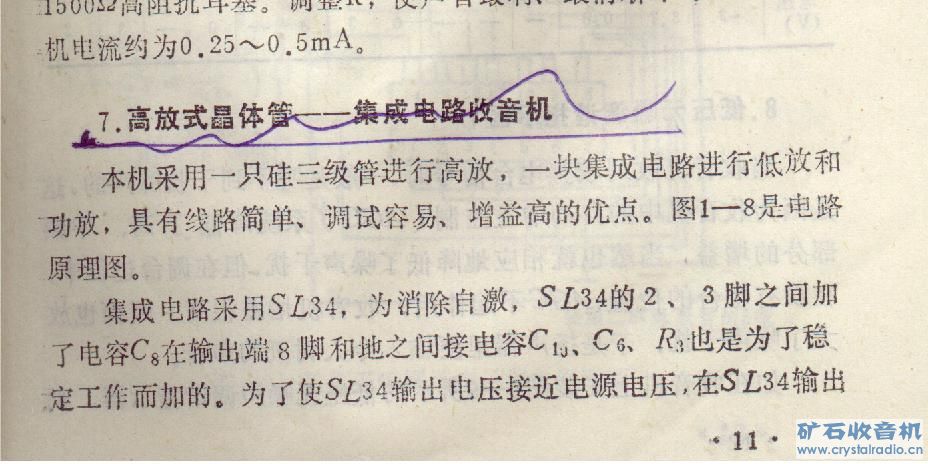 1500Ω高阻抗耳塞。调整R，使声音最
机电流约为0.25～0.5mA。
7.高放式晶体管——集成电路收音机
本机采用一只硅三级管进行高放，一块集成电路进行低放和
功放，具有线路简单、调试容易、增益高的优点。图1—8是电路
原理图。
集成电路采用SL34，为消除自激，SL34的2、3脚之间加
了电容C₈在输出端8脚和地之间接电容C₁₀、C₆、R₃也是为了稳
定工作而加的。为了使SL34输出电压接近电源电压,在SL34输出
·11·
矿石收音机
www.crystalradio.cn